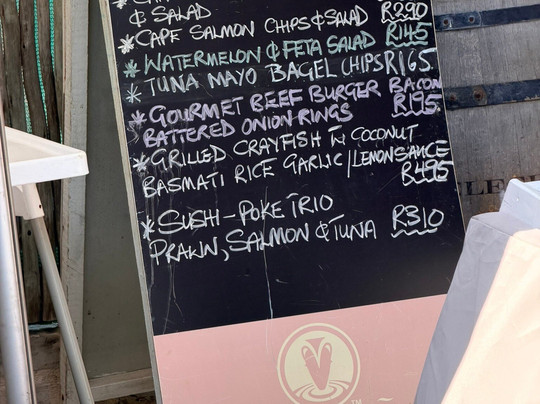 & SALAD
* CAPE SALMON CHIPS & SALAD R290
* WATERMELON & FETA SALAD R145
* TUNA MAYO BAGEL CHIPS R165
* GOURMET BEEF BURGER BACON
BATTERED ONION RINGS R195
* GRILLED CRAYFISH IN COCONUT
BASMATI RICE GARLIC/LEMON SAUCE
R495
* SUSHI-POKE TRIO
PRAWN, SALMON & TUNA R310
TM